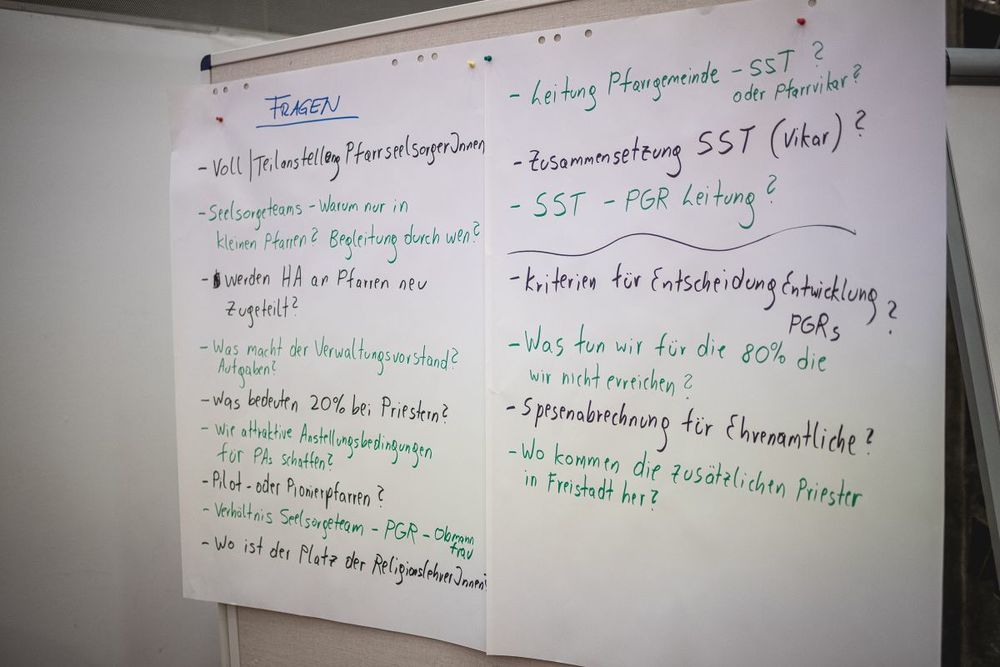 FRAGEN
- Voll/Teilanstellung PfarrseelsorgerInnen
- Seelsorgeteams - Warum nur in
kleinen Pfarren? Begleitung durch wen?
- werden HA an Pfarren neu
zugeteilt?
- Was macht der Verwaltungsvorstand?
Aufgaben?
- Was bedeuten 20% bei Priestern?
- Wie attraktive Anstellungsbedingungen
für PAs schaffen?
- Pilot- oder Pionierpfarren?
- Verhältnis Seelsorgeteam - PGR - Obmann
frau
- Wo ist der Platz der ReligionslehrerInnen?
- Leitung Pfarrgemeinde - SST ?
oder Pfarrvikar?
- Zusammensetzung SST (Vikar) ?
- SST - PGR Leitung ?
- Kriterien für Entscheidung Entwicklung
PGRs ?
- Was tun wir für die 80% die
wir nicht erreichen ?
- Spesenabrechnung für Ehrenamtliche ?
- Wo kommen die zusätzlichen Priester
in Freistadt her?